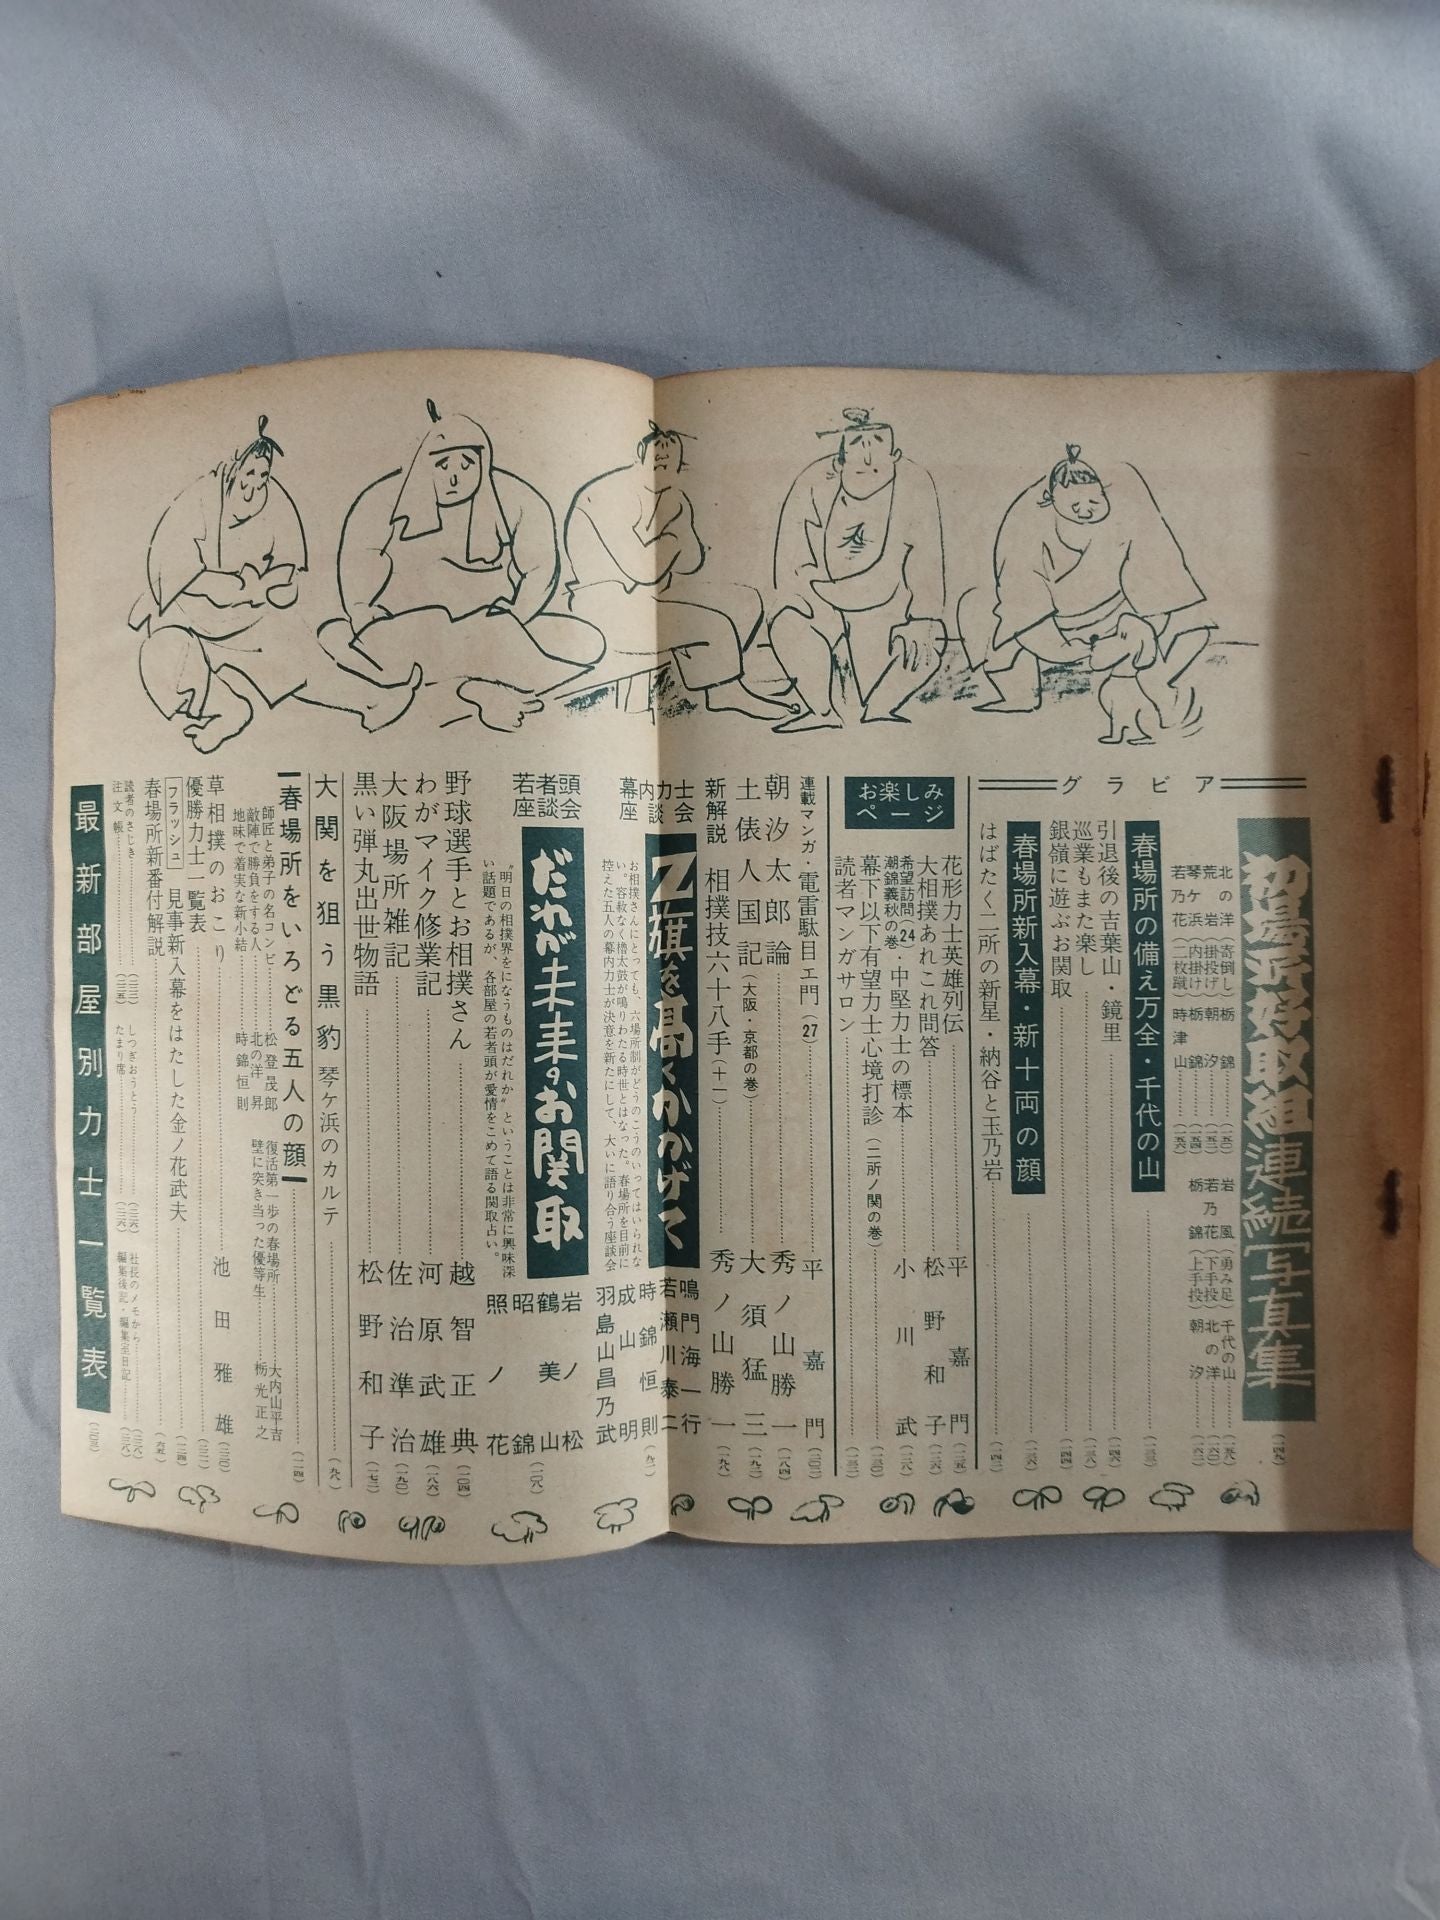 グラビア
初場所好取組連続写真集……(一四九)
北の洋(寄倒し)栃錦……(一五〇)
荒岩(掛投げ)朝汐……(一五二)
琴ケ浜(内掛け)栃錦……(一五四)
若乃花(二枚蹴)時津山……(一五六)
岩風(勇み足)千代の山……(一五八)
若乃花(下手投)北の洋……(一六〇)
栃錦(上手投)朝汐……(一六二)
春場所の備え万全・千代の山……(一三五)
引退後の吉葉山・鏡里……(一四六)
巡業もまた楽し……(一三八)
銀嶺に遊ぶお関取……(一四四)
春場所新入幕・新十両の顔……(一三六)
はばたく二所の新星・納谷と玉乃岩……(一四二)
お楽しみページ
花形力士英雄列伝……平嘉門(一二五)
大相撲あれこれ問答……松野和子(一二六)
希望訪問(24)・中堅力士の標本 潮錦義秋の巻……小川武(一二八)
幕下以下有望力士心境打診(二所ノ関の巻)……(一三〇)
読者マンガサロン……(一三二)
連載マンガ・電雷駄目エ門(27)……平嘉門(二〇〇)
朝汐太郎論……秀ノ山勝一(一八四)
土俵人国記(大阪・京都の巻)……大須猛三(一九二)
新解説 相撲技六十八手(十一)……秀ノ山勝一(一九八)
幕内力士座談会
Z旗を高くかかげて
お相撲さんにとっても、六場所制がどうのこうのいってはいられない。容赦なく櫓太鼓が鳴りわたる時世とはなった。春場所を目前に控えた五人の幕内力士が決意を新たにして、大いに語り合う座談会
鳴門海一行
若瀬川泰二
時錦恒則
成山明
羽島山昌乃武
(九二)
若者頭座談会
だれが未来のお関取
“明日の相撲界をになうものはだれか”ということは非常に興味深い話題であるが、各部屋の若者頭が愛情をこめて語る関取占い。
岩ノ松
鶴美山
昭錦
照ノ花
(一〇八)
野球選手とお相撲さん……越智正典(一〇四)
わがマイク修業記……河原武雄(一八六)
大阪場所雑記……佐治準治(一九〇)
黒い弾丸出世物語……松野和子(一七二)
大関を狙う黒豹 琴ケ浜のカルテ……(九八)
春場所をいろどる五人の顔……(一一四)
師匠と弟子の名コンビ……松登茂郎
敵陣で勝負をする人……北の洋昇
地味で着実な新小結……時錦恒則
復活第一歩の春場所……大内山平吉
壁に突き当った優等生……栃光正之
草相撲のおこり……池田雅雄(二三〇)
優勝力士一覧表……(二三二)
フラッシュ 見事新入幕をはたした金ノ花武夫……(一三四)
春場所新番付解説……(六五)
読者のさじき……(二三二)
注文帳……(二三五)
しつぎおうとう……(二三六)
たまり席……(二三六)
社長のメモから……(二三八)
編集後記・編集室日記……(二三八)
最新部屋別力士一覧表……(二〇三)